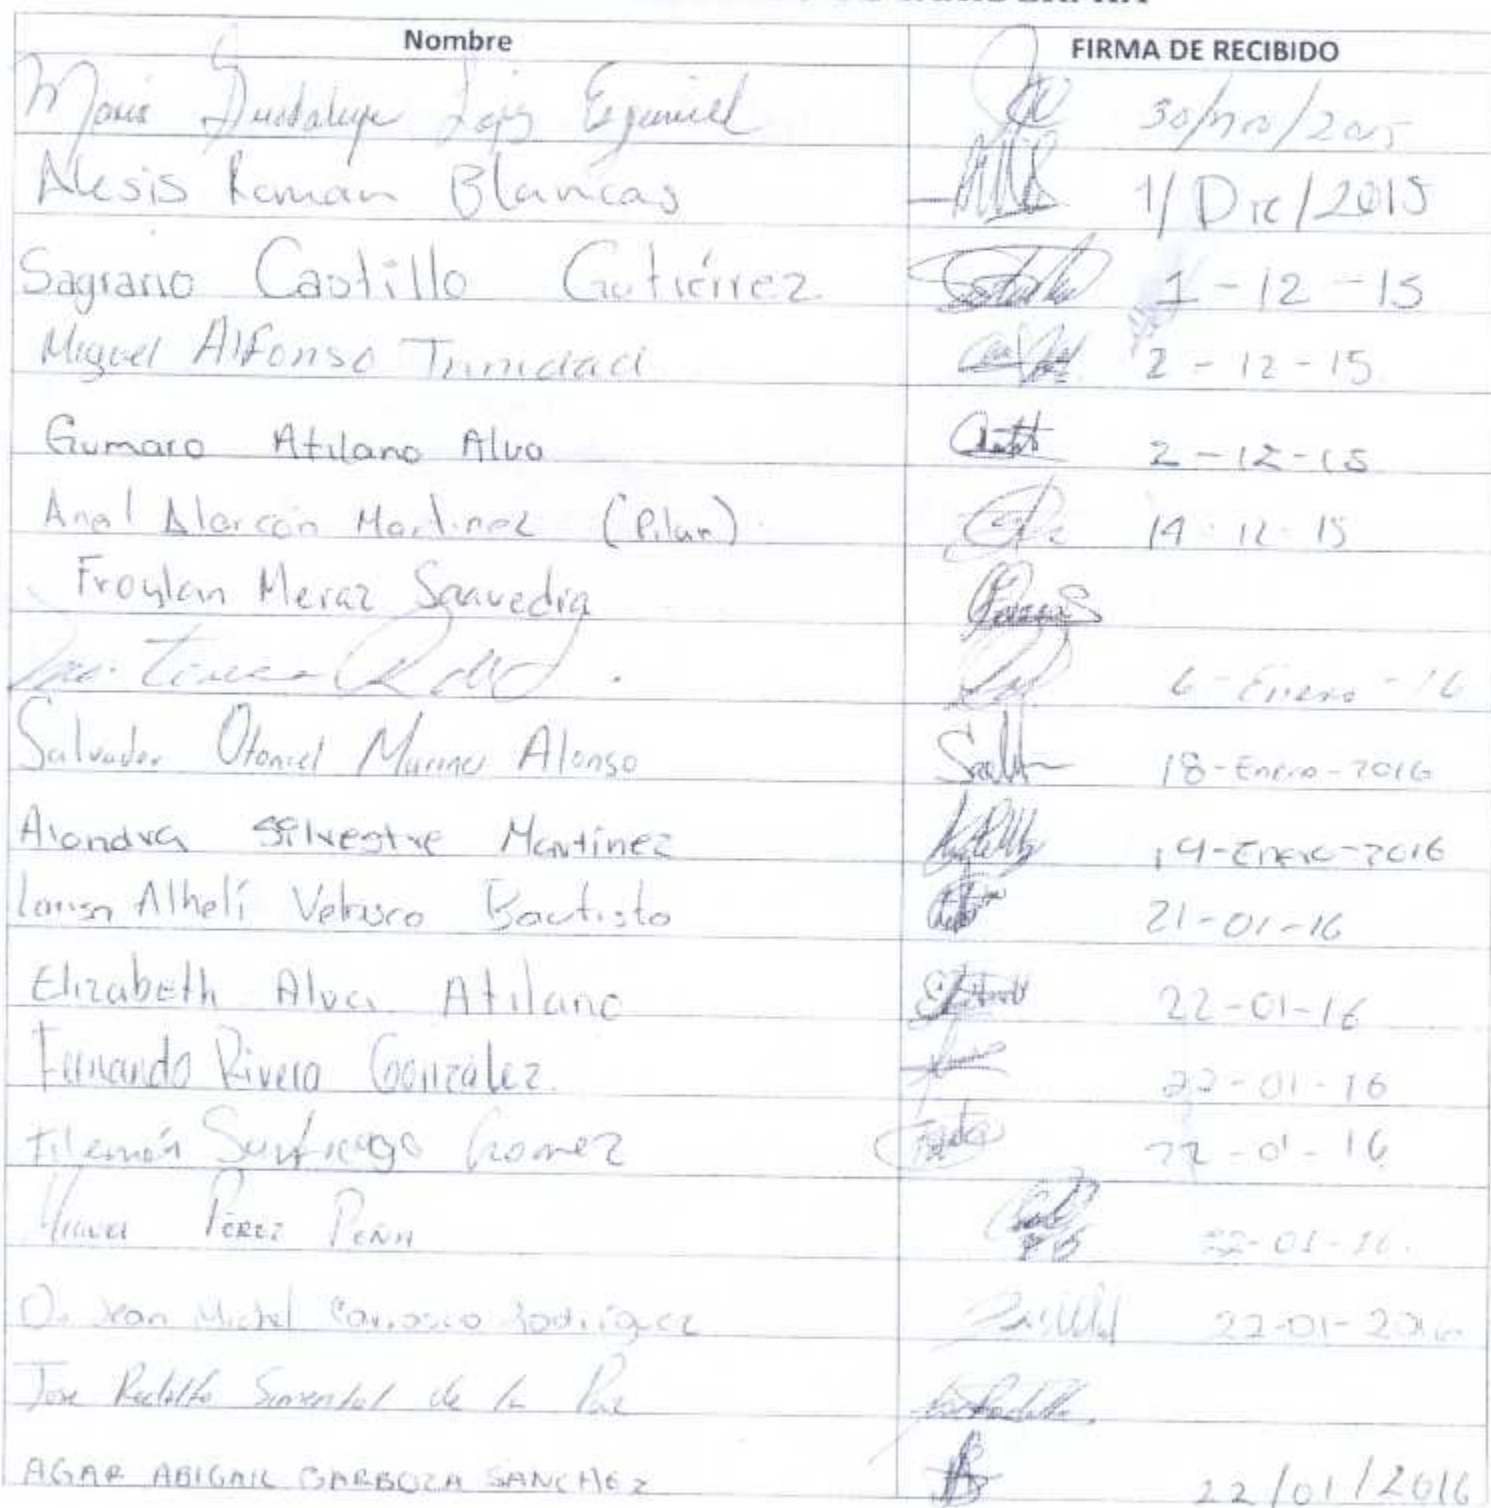 Nombre FIRMA DE RECIBIDO
Maria Guadalupe 30/nov/2015
Alesis Roman Blancas 1/Dic/2015
Sagrario Castillo Gutiérrez 1-12-15
Miguel Alfonso Trinidad 2-12-15
Gumaro Atilano Alva 2-12-15
Alarcón Martinez (Pilar) 14-12-15
Froylan Meraz Saavedra
6-Enero-16
Salvador Otoniel Alonso 18-Enero-2016
Alondra Silvestre Martínez 19-Enero-2016
Alhelí Velasco Bautista 21-01-16
Elizabeth Alva Atilano 22-01-16
Fernando Rivera González 22-01-16
Filemón Santiago Gomez 22-01-16
PÉREZ PEÑA 22-01-16
Jean Michel Carrasco Rodríguez 22-01-2016
Jose Rodolfo de la Paz
AGAR ABIGAIL BARBOZA SANCHEZ 22/01/2016